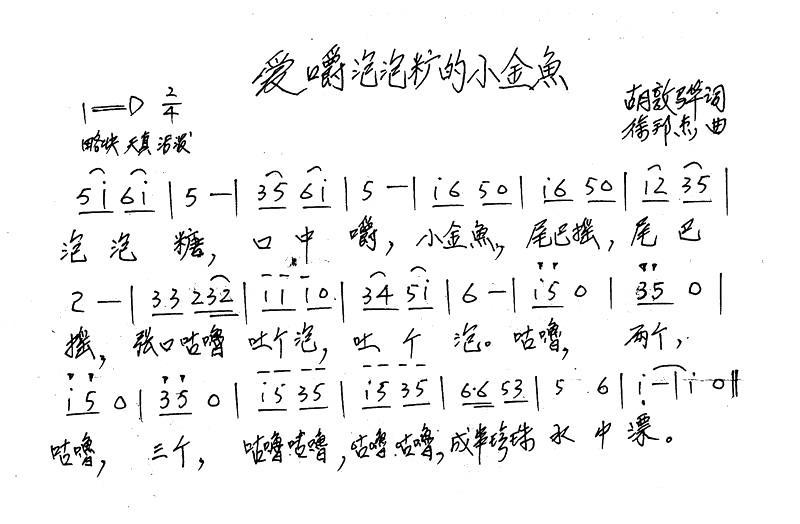 爱嚼泡泡糖的小金魚
1=D 2/4
胡敦骅词
略快 天真 活泼
徐邦杰曲
5i 6i | 5 — | 35 6i | 5 — | i6 50 | i6 50 | i2 35 |
泡泡糖，口中嚼，小金魚，尾巴摇，尾巴
2 — | 33 232 | 11 10 | 34 5i | 6 — | i5 0 | 35 0 |
摇，张口咕噜吐个泡，吐个泡。咕噜，两个，
i5 0 | 35 0 | i5 35 | i5 35 | 6·6 53 | 5 6 | i — | i 0 ‖
咕噜，三个，咕噜咕噜，咕噜咕噜，成半珍珠水中漂。